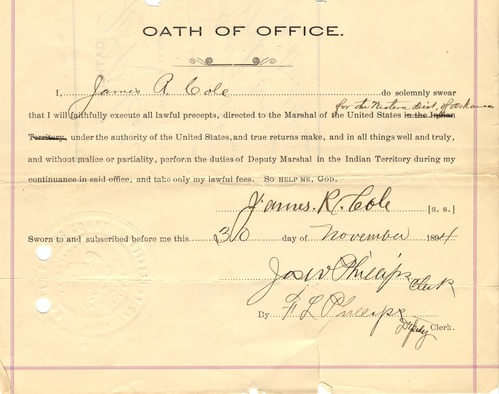 OATH OF OFFICE.
I, James R. Cole do solemnly swear
for the Western Dist. of Arkansas
that I will faithfully execute all lawful precepts, directed to the Marshal of the United States in the Indian
Territory, under the authority of the United States, and true returns make, and in all things well and truly,
and without malice or partiality, perform the duties of Deputy Marshal in the Indian Territory during my
continuance in said office, and take only my lawful fees. SO HELP ME, GOD.
James. R. Cole [S. S.]
Sworn to and subscribed before me this 30 day of November 1894
Clerk
By F L Deputy Clerk.